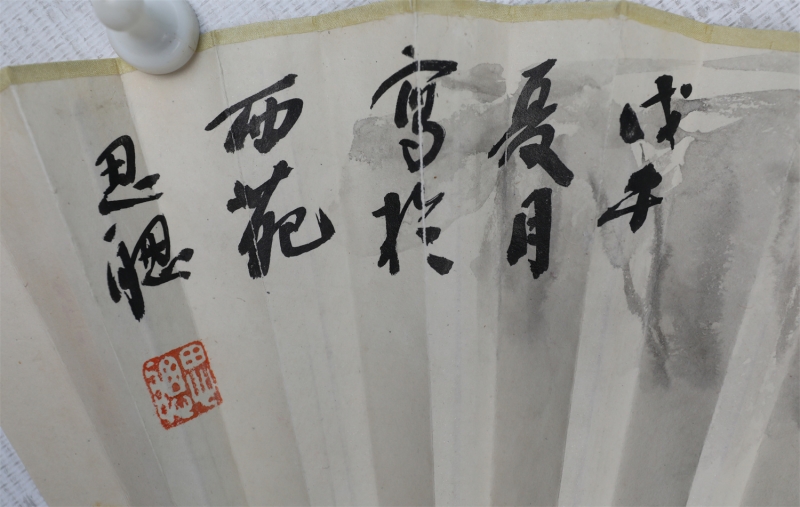 戊午
夏月
寫於
西苑
思聰